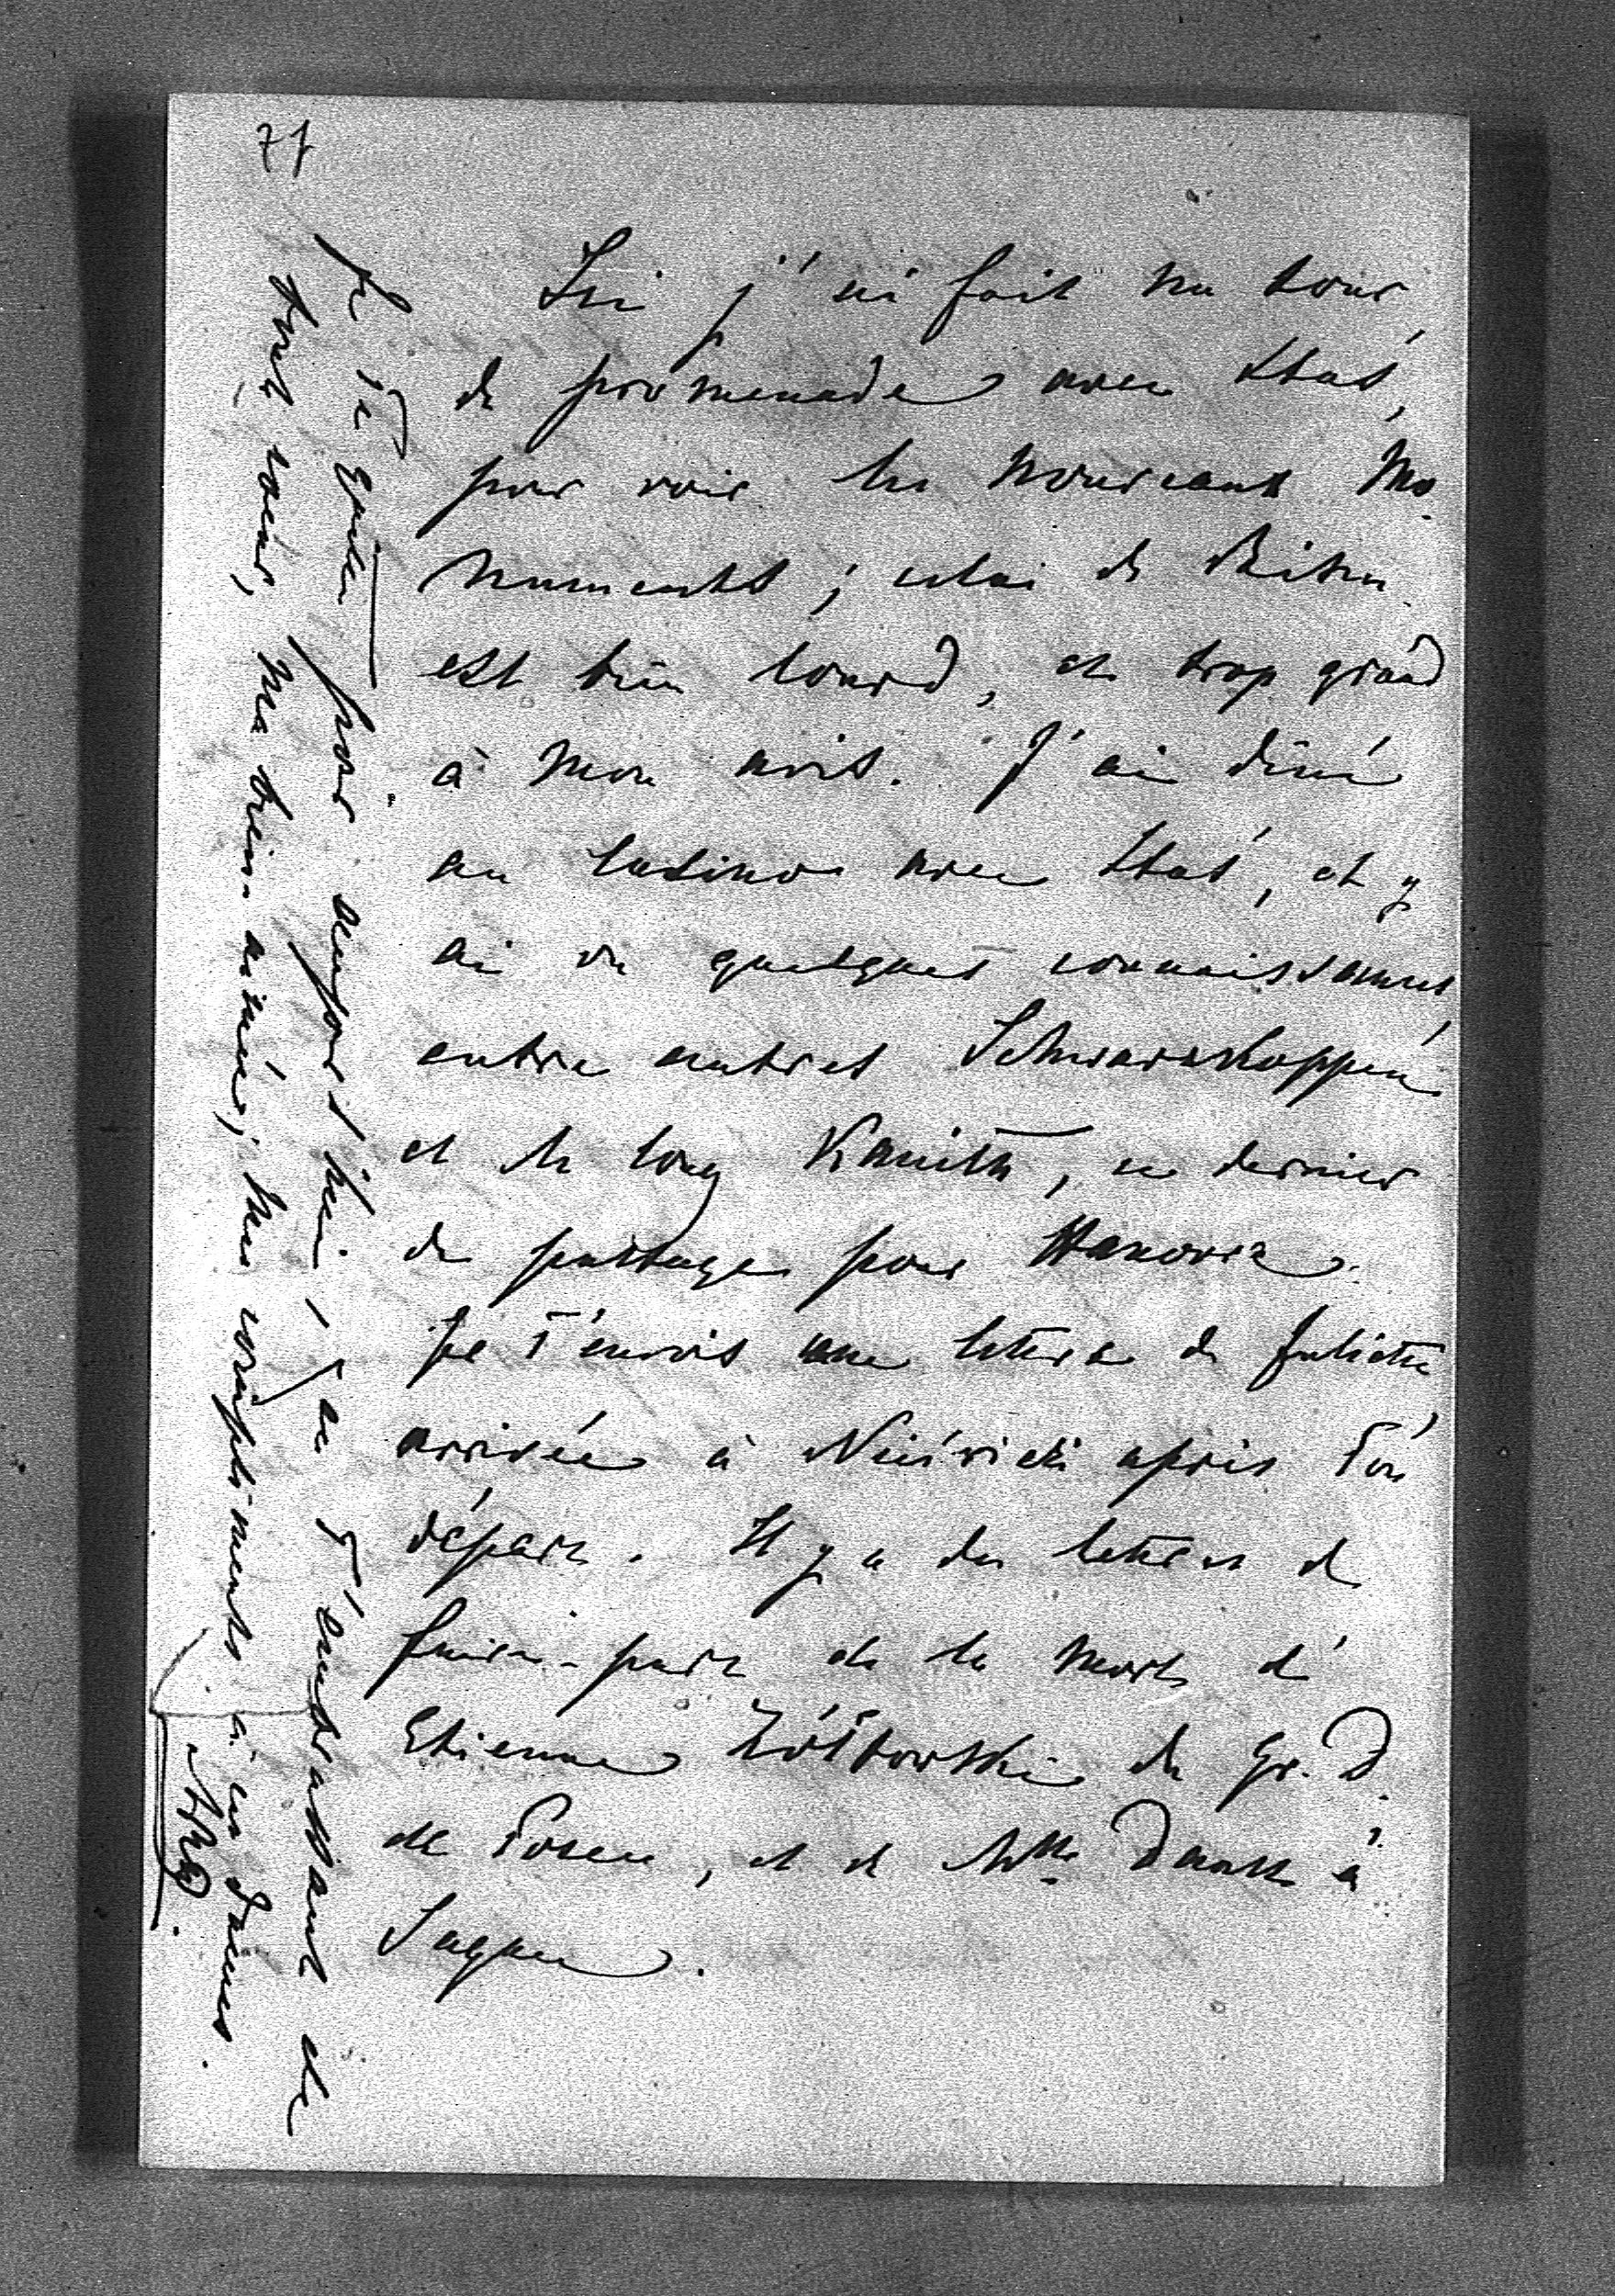 71
Ici j'ai fait un tour
de promenade avec Staś,
pour voir les nouveaux mo-
numents; celui de Bism.
est bien lourd, et trop grand
à mon avis. J'ai diné
au Casino avec Staś, et y
ai vu quelques connaissances,
entre autres Schwarzkoppen
et le long Kanitz, ce dernier
de passage pour Hanovre.
Je t'envois une lettre de Juliette
arrivée à Nieśwież après ton
départ. Il y a des lettres de
faire-part de la mort d'
Etienne Żółtowski du Gr. D.
de Posen, et de Mlle à
Sagan.
Je Te quitte pour aujourd'hui, en T'embrassant de
tout coeur, ma bien-aimée; mes compliments à ces dames.